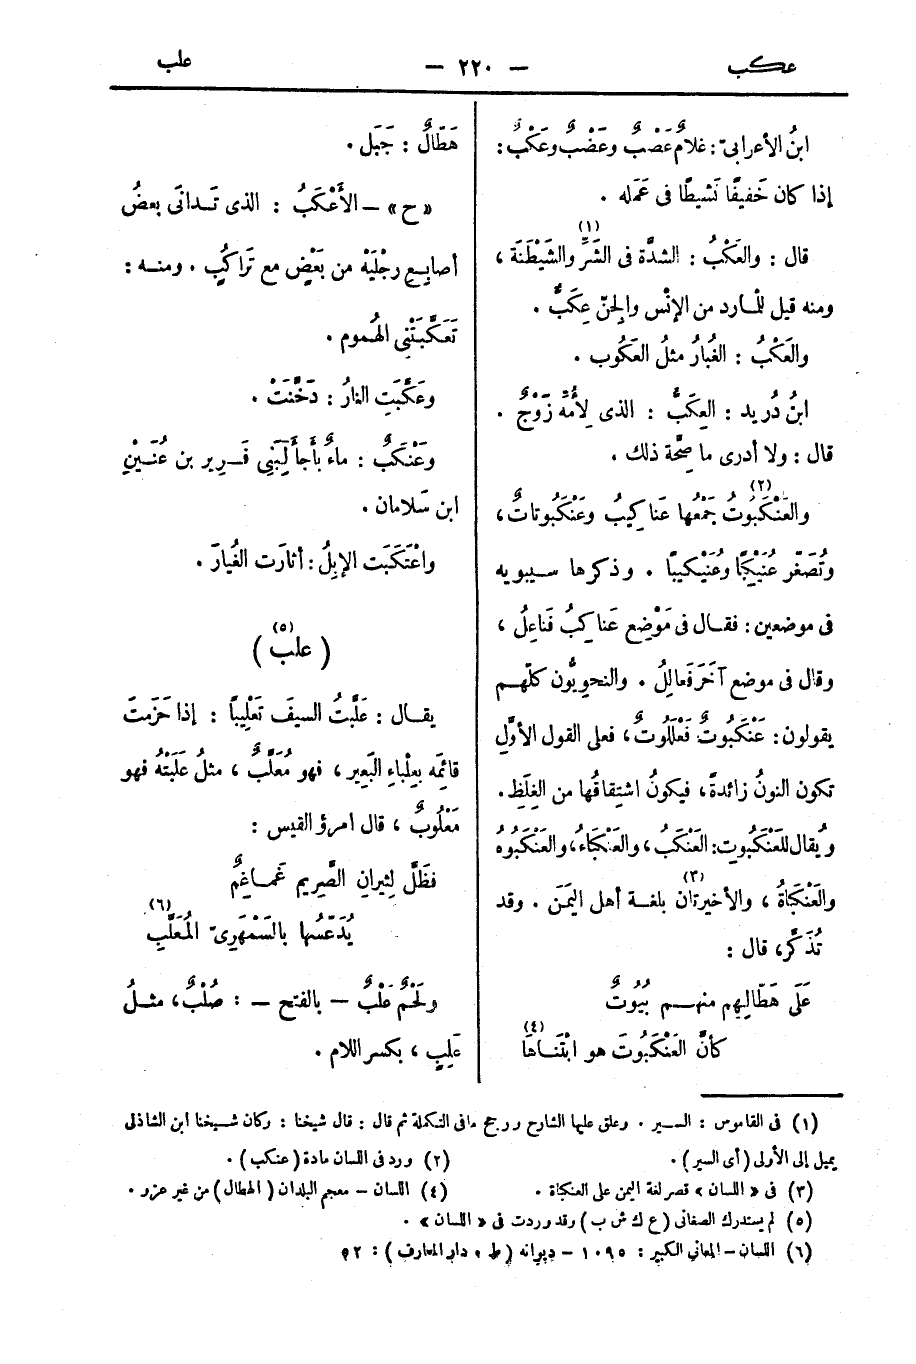 عكب
— ٢٢٠ —
علب
ابنُ الأعرابىّ: غلامٌ عَصْبٌ وعَضْبٌ وعَكْبٌ:
إذا كان خَفيفًا نَشيطًا فى عَمَله .
قال : والعَكْبُ : الشدَّة فى الشَّرِّ (١) والشَيْطَنَة ،
ومنه قيل للمارد من الإنْس والجنّ عِكَبٌّ .
والعَكْبُ : الغُبارُ مثلُ العَكُوب .
ابنُ دُريد : العِكَبُّ : الذى لِأُمِّه زَوْجٌ .
قال : ولا أدرى ما صِحَّة ذلك .
والعَنْكَبُوتُ (٢) جَمْعُها عَناكِيبُ وعَنْكَبُوتاتٌ ،
وتُصَغّر عُنَيْكِبًا وعُنَيْكِيبًا . وذكرها سيبويه
فى موضعين : فقال فى مَوْضِع عَناكِبُ فَناعِلُ ،
وقال فى موضع آخَرَ فَعالِلُ . والنحويُّون كلّهم
يقولون : عَنْكَبُوتٌ فَعْلَلُوتٌ ، فعلى القول الأوَّلِ
تكون النونُ زائدةً ، فيكونُ اشتِقاقُها من الغِلَظِ .
ويُقال للعَنْكَبُوتِ: العَنْكَبُ ، والعَنْكَباءُ ، والعَنْكَبُوهُ
والعَنْكَباةُ ، والأخيرتان (٣) بلغة أهل اليَمَن . وقد
تُذَكَّر ، قال :
عَلَى هَطّالِهِم منهم بُيُوتٌ
كأنَّ العَنْكَبُوتَ هو ابْتَناهَا (٤)
هَطّالٌ : جَبَل .
«ح» — الأَعْكَبُ : الذى تَدانَى بعضُ
أصابِعِ رِجْلَيْه من بَعْضٍ مع تَراكُبٍ . ومنه :
تَعَكَّبَتْنِى الهُموم .
وعَكَّبَتِ النارُ : دَخَّنَتْ .
وعَنْكَبٌ : ماءٌ بأَجَأَ لِبَنِى فَرِير بن عُنَيْنِ
ابن سَلامان .
واعْتَكَبَت الإبِلُ : أثارَت الغُبارَ .
( علب ) (٥)
يقال : عَلَّبْتُ السيفَ تَعْلِيباً : إذا حَزَمتَ
قائِمَه بِعِلْباءِ البَعِيرِ ، فهو مُعَلَّبٌ ، مثلُ عَلَبْتَه فهو
مَعْلُوبٌ ، قال امرؤ القيس :
فظَلَّ لِثِيرانِ الصَّرِيمِ غَماغِمٌ
يُدَعِّسُها بالسَمْهَرِىّ المُعَلَّبِ (٦)
ولَحْمٌ عَلْبٌ — بالفتح — : صُلْبٌ ، مثلُ
عَلِبٍ ، بكسر اللام .
(١) فى القاموس : السير . وعلق عليها الشارح ورجح مافى التكملة ثم قال : قال شيخنا : وكان شيخنا ابن الشاذلى
يميل إلى الأولى (أى السير) .
(٢) ورد فى اللسان مادة (عنكب) .
(٣) فى « اللسان » قصر لغة اليمن على العنكباة .
(٤) اللسان – معجم البلدان (الهطال) من غير عزو .
(٥) لم يستدرك الصغانى (ع ك ش ب) وقد وردت فى « اللسان » .
(٦) اللسان – المعانى الكبير : ١٠٩٥ – ديوانه (ط ، دار المعارف) : ٥٢